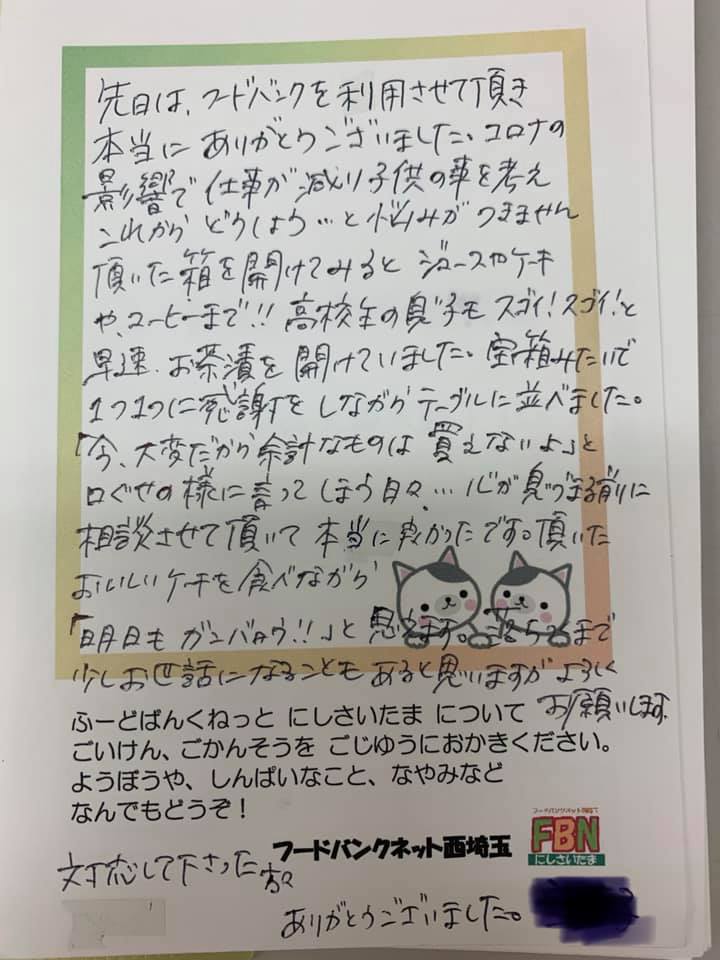 先日は、フードバンクを利用させて頂き
本当にありがとうございました。コロナの
影響で仕事が減り子供の事を考え
これから どうしよう…と悩みがつきません
頂いた箱を開けてみると ジュースやケーキ
や、コーヒーまで!! 高校生の息子も スゴイ!スゴイ!と
早速、お茶漬を 開けていました。宝箱みたいで
1つ1つに感謝を しながら テーブルに並べました。
「今、大変だから余計なものは 買えないよ」と
口ぐせの様に言ってしまう日々…心が息づまる前に
相談させて頂いて 本当に良かったです。頂いた
おいしいケーキを食べながら
「明日も ガンバロウ!!」と 思えます。まで
少しお世話になることも あると思いますが よろしく
お願いします。
ふーどばんくねっと にしさいたま について
ごいけん、ごかんそうを ごじゆうにおかきください。
ようぼうや、しんぱいなこと、なやみなど
なんでもどうぞ！
フードバンクネット西埼玉
フードバンクネット西埼玉
FBN
にしさいたま
対応して下さった方々
ありがとうございました。